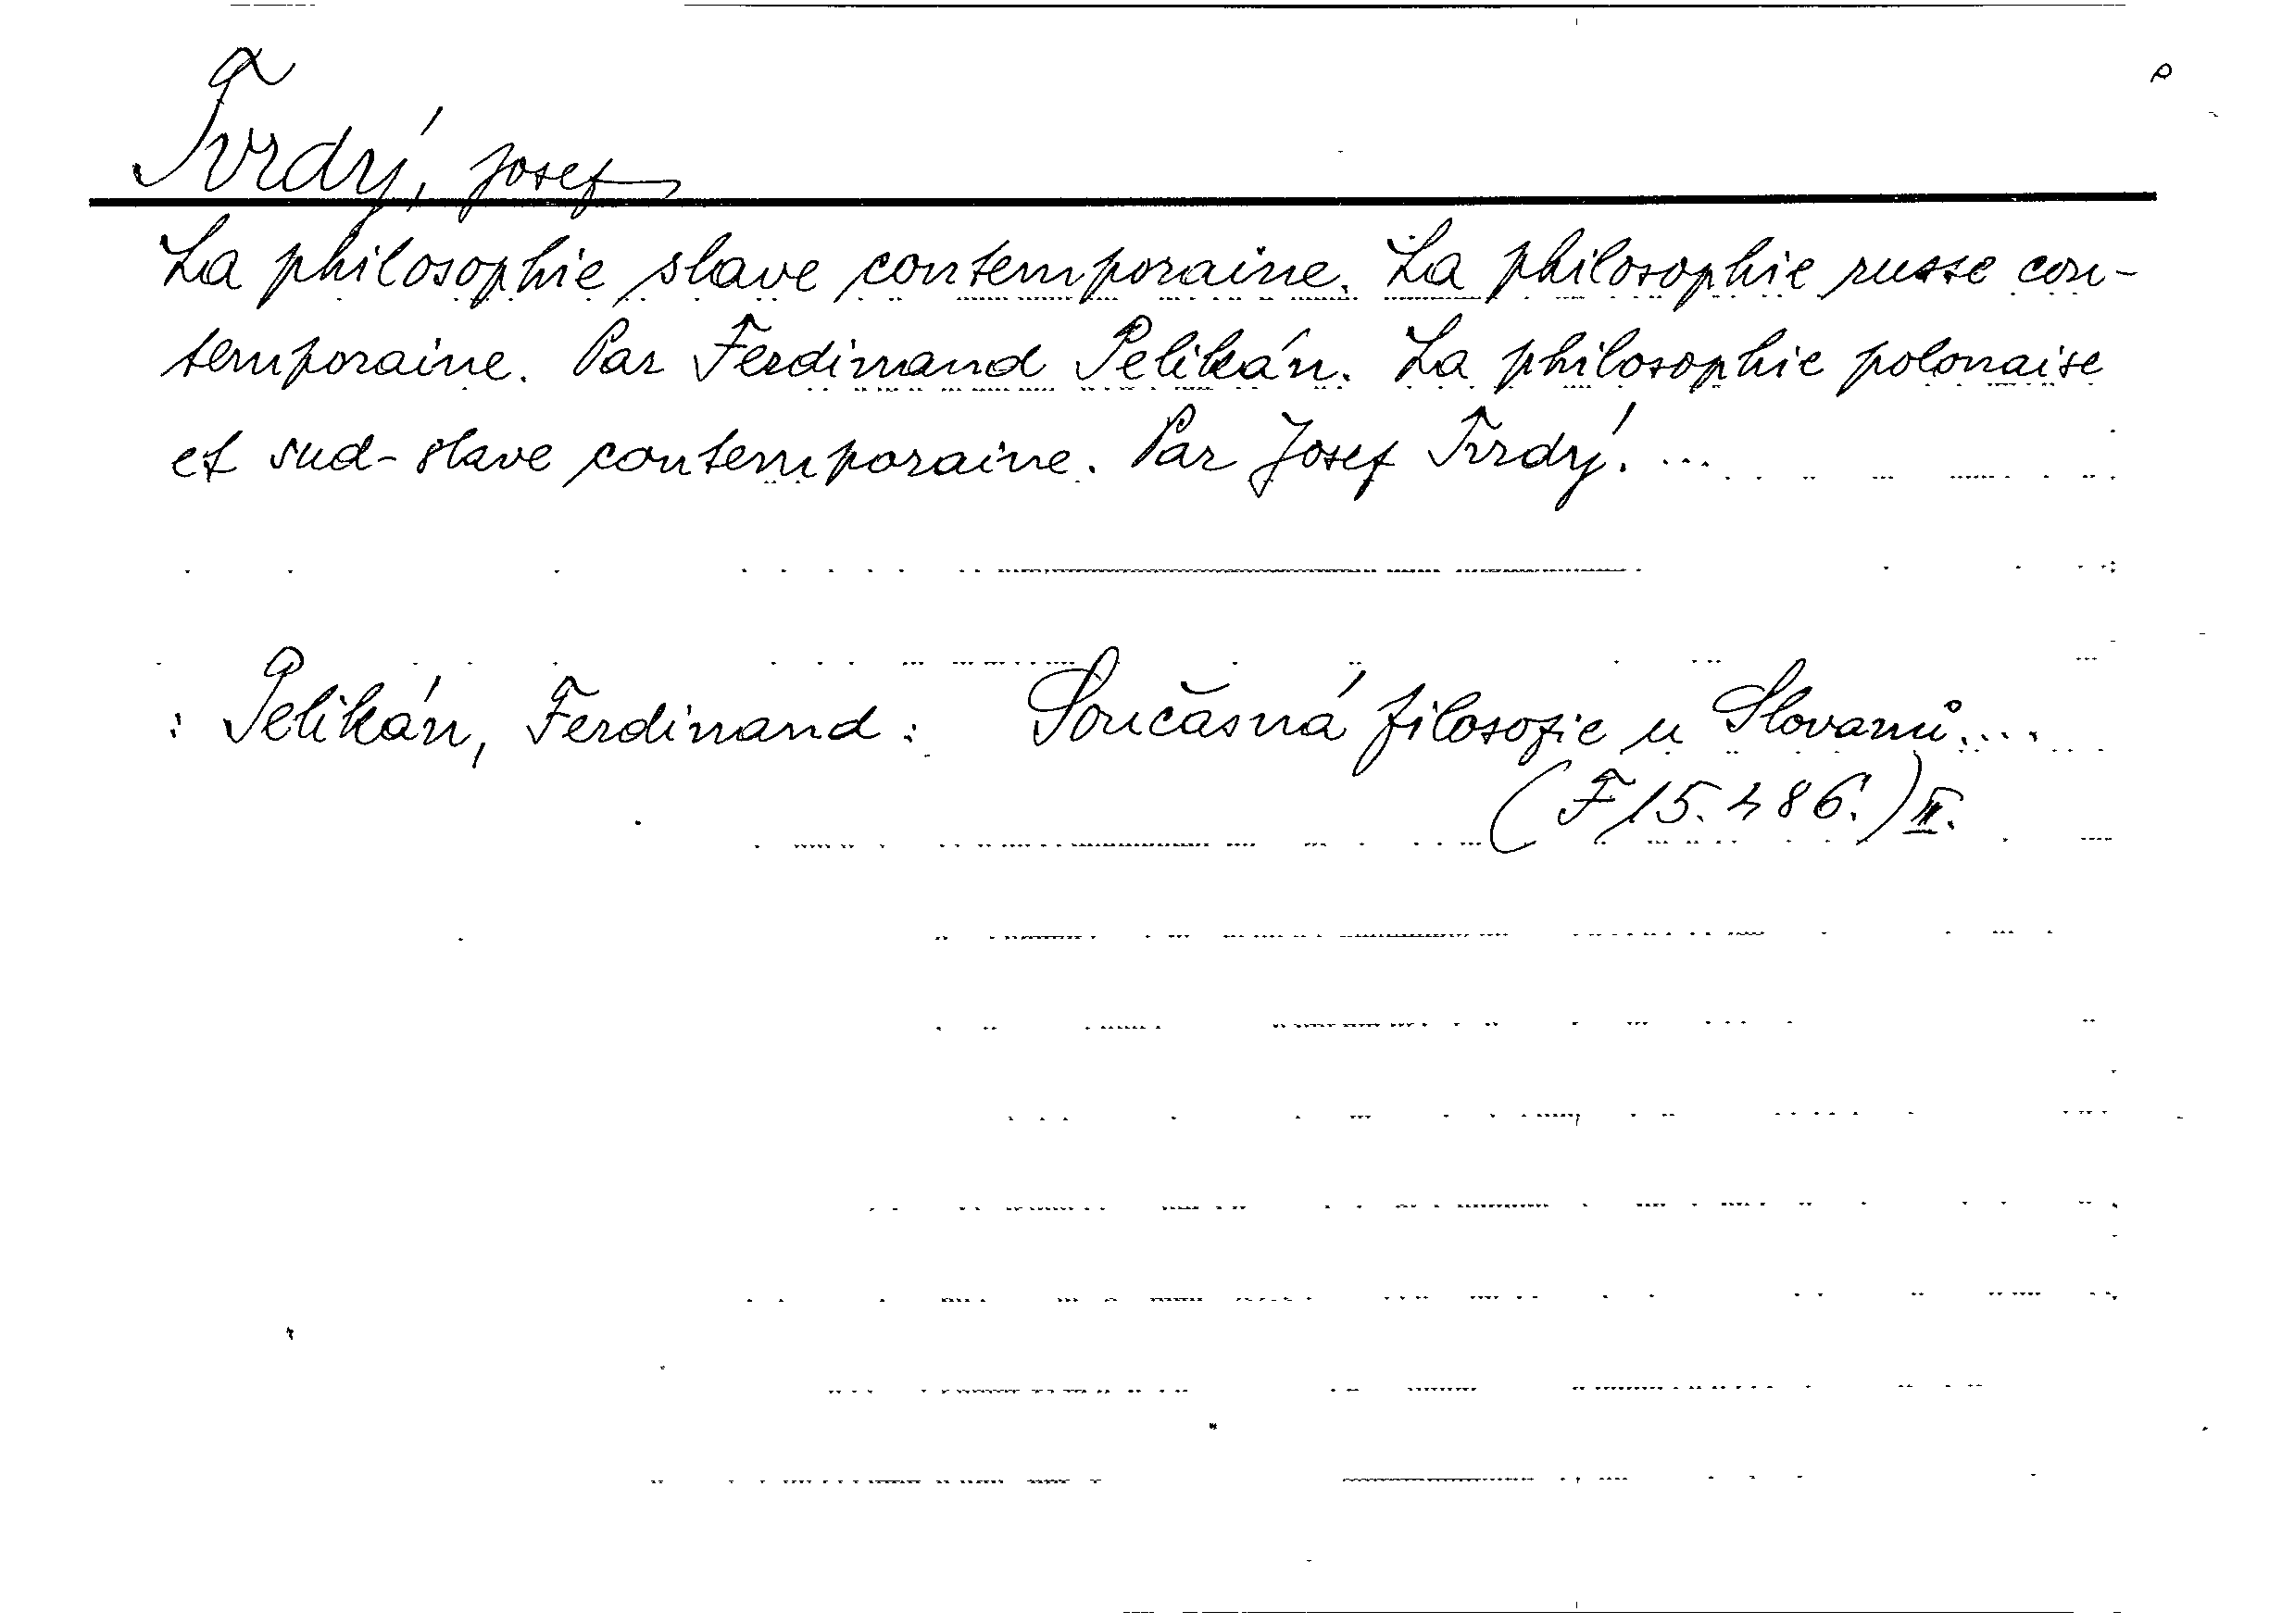 Tvrdý, Josef
La philosophie slave contemporaine. La philosophie russe con-
temporaine. Par Ferdinand Pelikán. La philosophie polonaise
et sud-slave contemporaine. Par Josef Tvrdý. ...
: Pelikán, Ferdinand: Současná filosofie u Slovanů....
(F 15.486.) II.